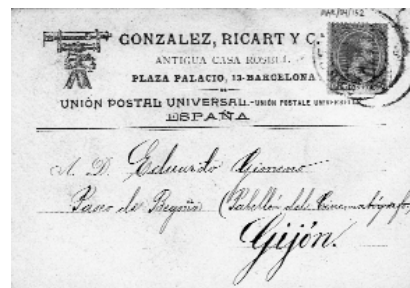 GONZALEZ, RICART Y C.ª
ANTIGUA CASA ROSELL
PLAZA PALACIO, 13-BARCELONA
UNIÓN POSTAL UNIVERSAL.-UNIÓN POSTALE UNIVERSELLE
ESPAÑA
A. D. Eduardo Gimeno
Paseo de Begoña (Pabellón del Cinematógrafo)
Gijón.